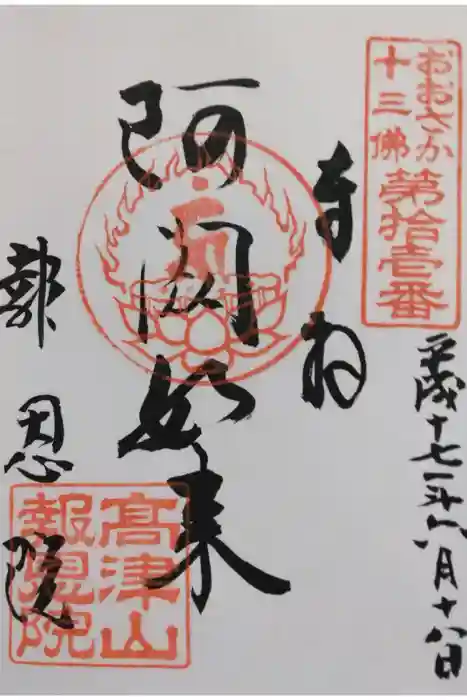 おおさか
十三佛
第拾壱番
平成十七年六月十八日
奉拝
阿閦如来
報恩院
高津山
報恩院